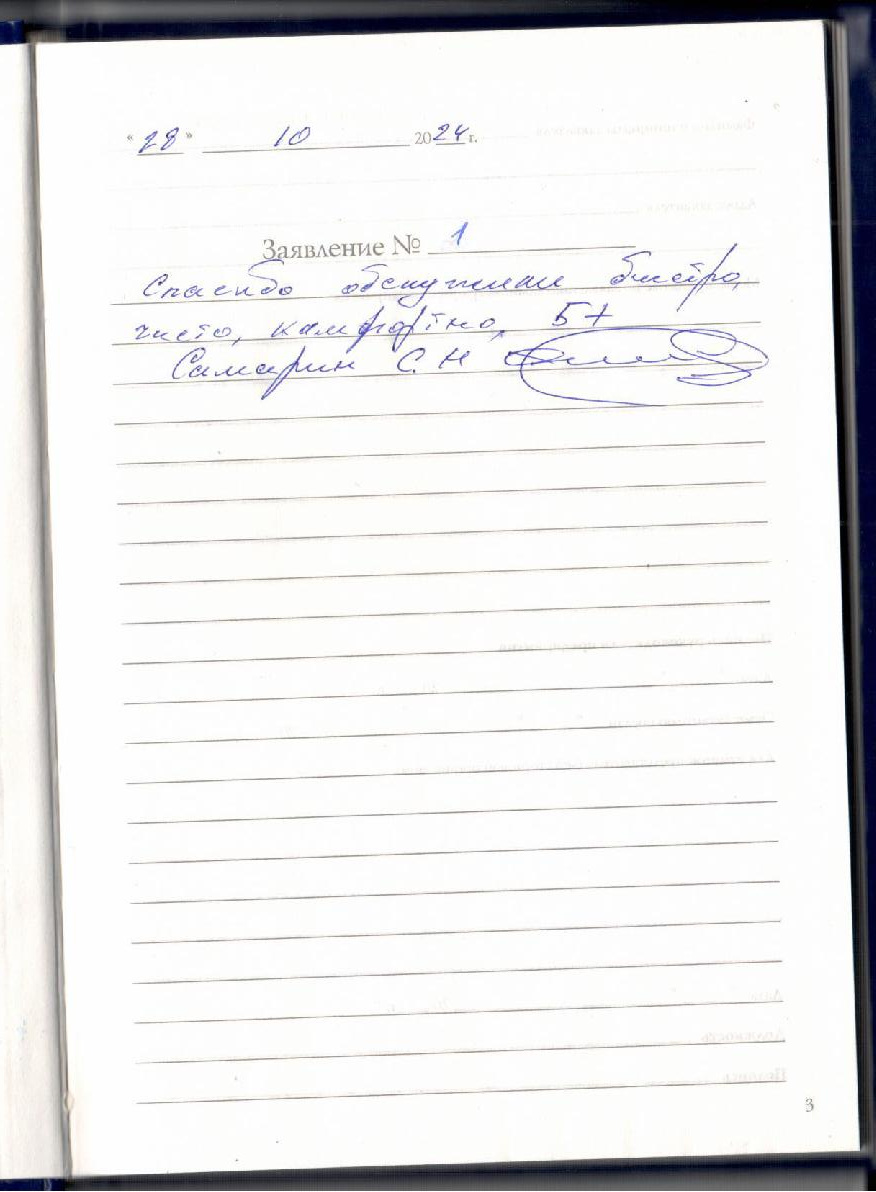 "28" 10 2024 г.
Заявление № 1
Спасибо обслужили быстро,
чисто, камфортно, 5+
Самарин С. Н
3